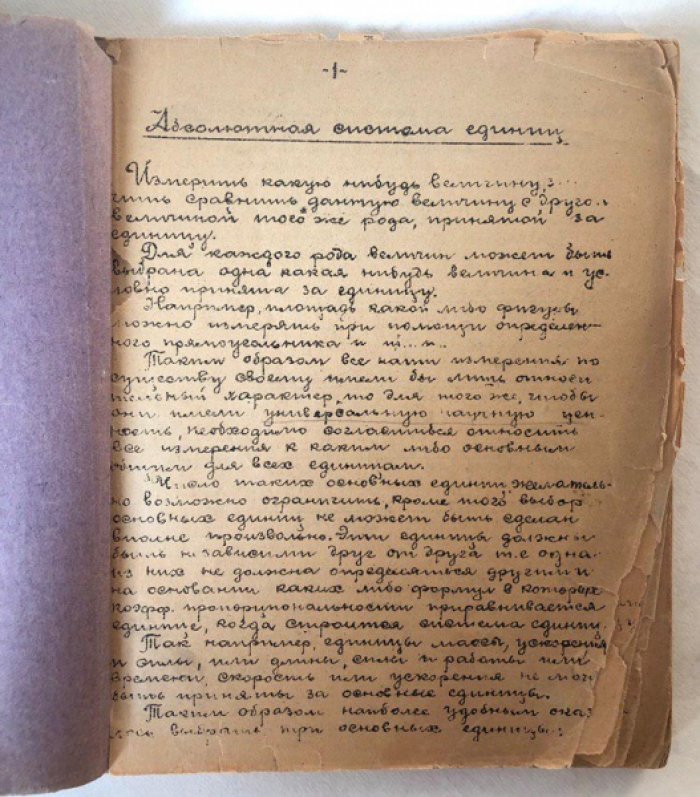 -1-
Абсолютная система единиц
Измерить какую нибудь величину, з...
чить сравнить данную величину с друго
величиной того же рода, принятой за
единицу.
Для каждого рода величин может быть
выбрана одна какая нибудь величина и ус-
ловно принята за единицу.
Например, площадь какой либо фигуры
можно измерять при помощи определен-
ного прямоугольника и
Таким образом все наши измерения по
существу своему имели бы лишь относи
тельный характер, но для того же, чтобы
они имели универсальную научную цен-
ность, необходимо согласиться относить
все измерения к каким либо основным
общим для всех единицам.
Число таких основных единиц желатель-
но возможно ограничить, кроме того выбор
основных единиц не может быть сделан
вполне произвольно. Эти единицы должны
быть независими друг от друга т.е одна
из них не должна определяться другими
на основании каких либо формул в которых
коэфф. пропорциональности приравнивается
единице, когда строится система единиц.
Так например, единицы массы, ускорения
и силы, или длины, силы и работы или
времени, скорость или ускорения не мог
быть приняты за основные единицы.
Таким образом наиболее удобным оказ
лось выбрать три основных единицы: